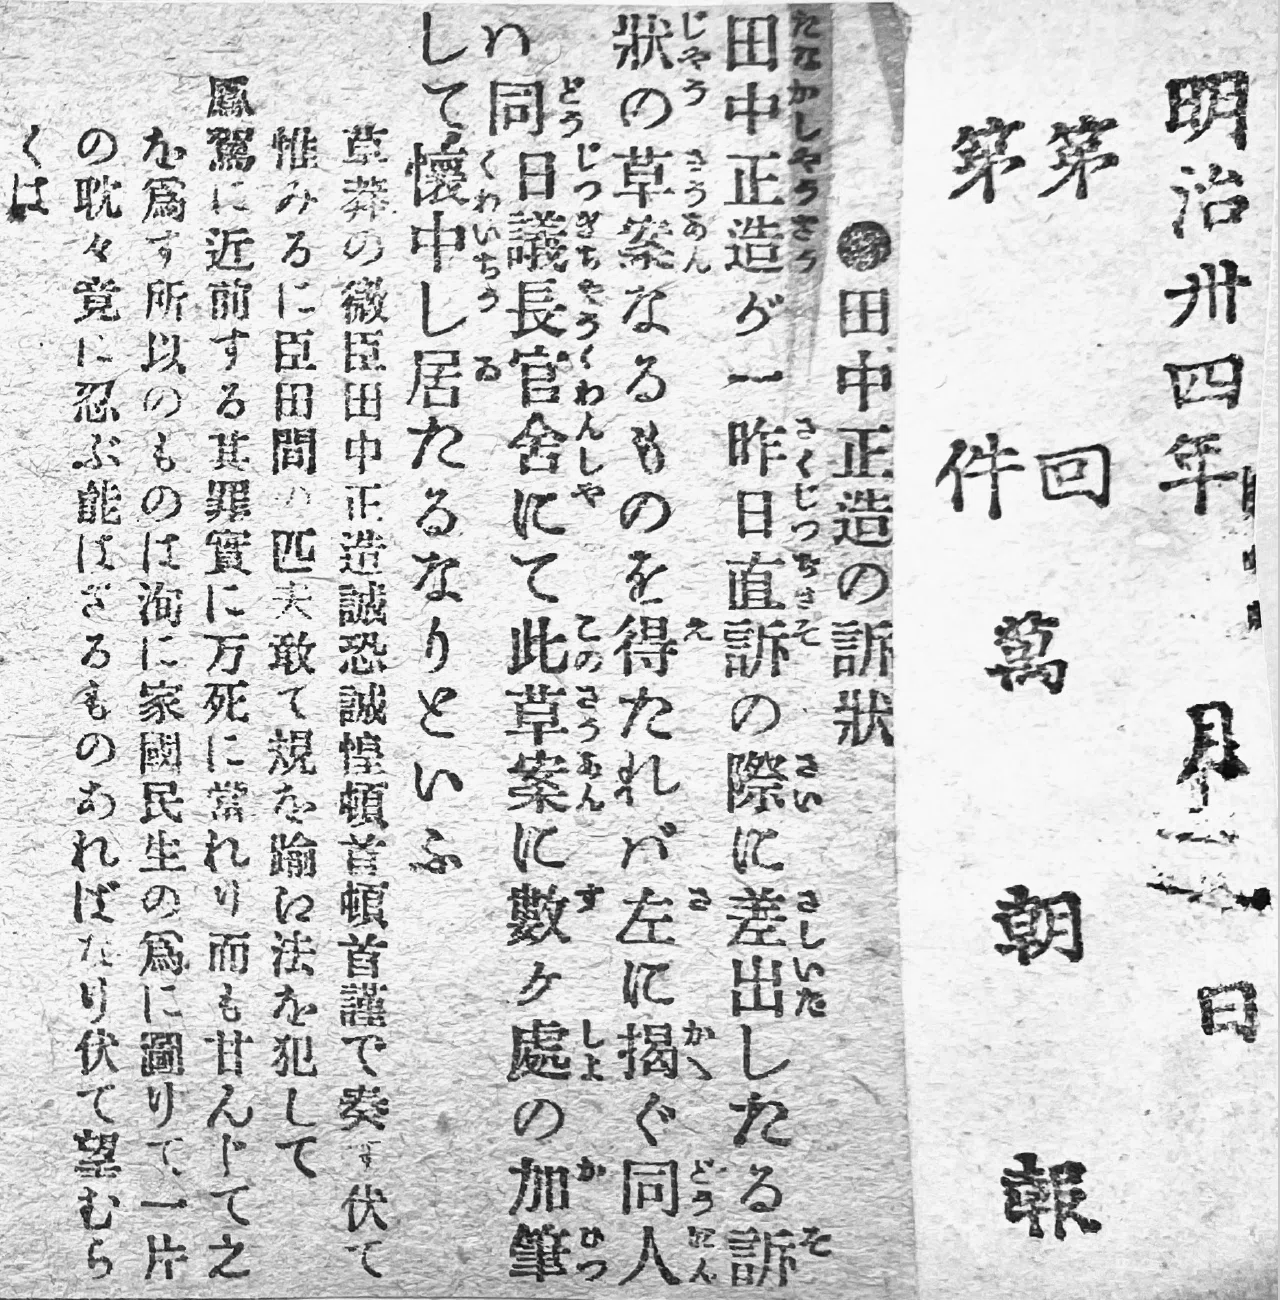 明治卅四年 月十二日
第 回
第 件
萬朝報
●田中正造の訴狀
田中正造が一昨日直訴の際に差出したる訴
狀の草案なるものを得たれバ左に揭ぐ同人
ハ同日議長官舍にて此草案に數ヶ處の加筆
して懷中し居たるなりといふ
草莽の微臣田中正造誠恐誠惶頓首頓首謹で奏す伏て
惟みるに臣田間の匹夫敢て規を踰に法を犯して
鳳駕に近前する其罪實に万死に當れり而も甘んじて之
を爲す所以のものは洵に家國民生の爲に圖りて一片
の耿々竟に忍ぶ能はざるものあればなり伏て望むら
くは